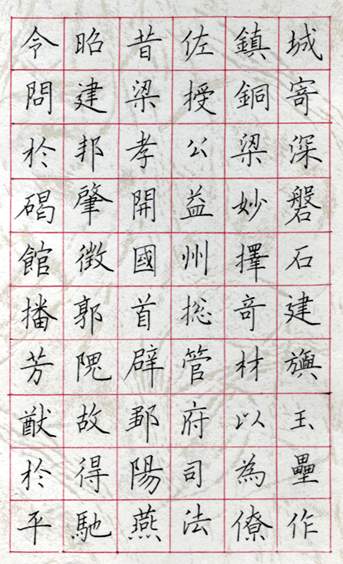 城寄深磐石建旟玉壘作
鎮銅梁妙擇奇材以為僚
佐授公益州揔管府司法
昔梁孝開國首辟鄒陽燕
昭建邦肇徵郭隗故得馳
令問於碣館播芳猷於平